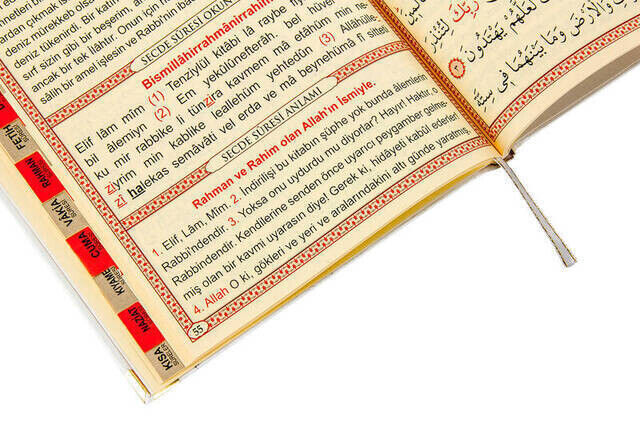 deniz mürekkep olsa
sırf sizin gibi bir beşerim, an
ancak bir tek ilâhtır. Onun için h
sâlih bir amel işlesin ve Rabbi'ne ibâ
SECDE SÛRESİ OKUN
Bismillâhirrahmânirrahîm
Elif lâm mîm (1) Tenzîylül kitâbi lâ raybe fî
bil âlemîyn (2) Em yekûlûnefterâh. bel hü
ku mir rabbike li tünzira kavmem mâ etâhüm min ne
ziyrim min kablike leallehüm yehtedûn (3) Allâhülle-
zî halekas semâvâti vel erda ve mâ beynehümâ fî sitteti
SECDE SÛRESİ ANLAMI
Rahman ve Rahim olan Allah'ın İsmiyle.
1. Elif, Lâm, Mîm. 2. İndirilişi bu kitabın şüphe yok bunda âlemlerin
Rabbi'ndendir. 3. Yoksa onu uydurdu mu diyorlar? Hayır! Haktır, o
Rabbindendir. Kendilerine senden önce uyarıcı peygamber gelme-
miş olan bir kavmi uyarasın diye! Gerek ki, hidâyeti kabûl ederler!
4. Allah O ki, gökleri ve yeri ve aralarındakini altı günde yaratmış,
55
FETİH
RAHMAN
VAKIA
CUMA
KIYAME
NAZİAT
KISA
SURELER
رَبِّكَ لِتُنْذِرَ
لَعَلَّهُمْ يَهْتَدُونَ
وَالْاَرْضَ وَمَا بَيْنَهُمَا فِي سِتَّةِ